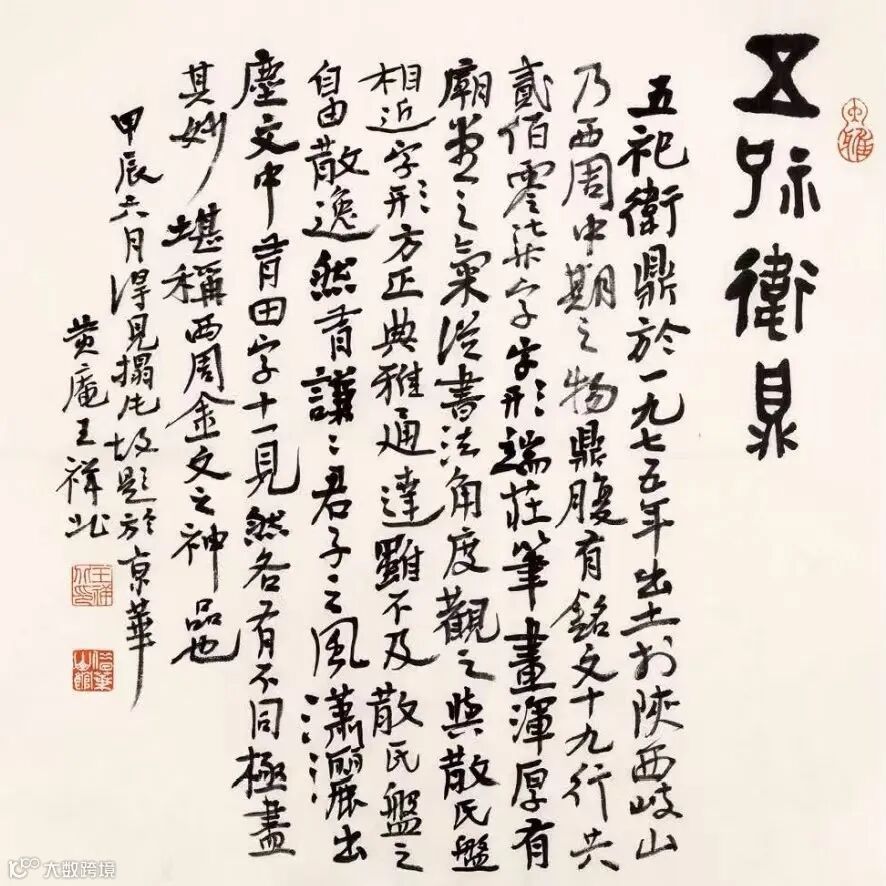 五祀衛鼎
五祀衛鼎於一九七五年出土於陝西岐山
乃西周中期之物鼎腹有銘文十九行共
貳佰零柒字字形端莊筆畫渾厚有
廟堂之氣從書法角度觀之與散氏盤
相近字形方正典雅通達雖不及散氏盤之
自由散逸然有謙謙君子之風瀟灑出
塵文中有田字十一見然各有不同極盡
其妙堪稱西周金文之神品也
甲辰六月得見搨片故題於京華
黄庵王祥北
大数跨境